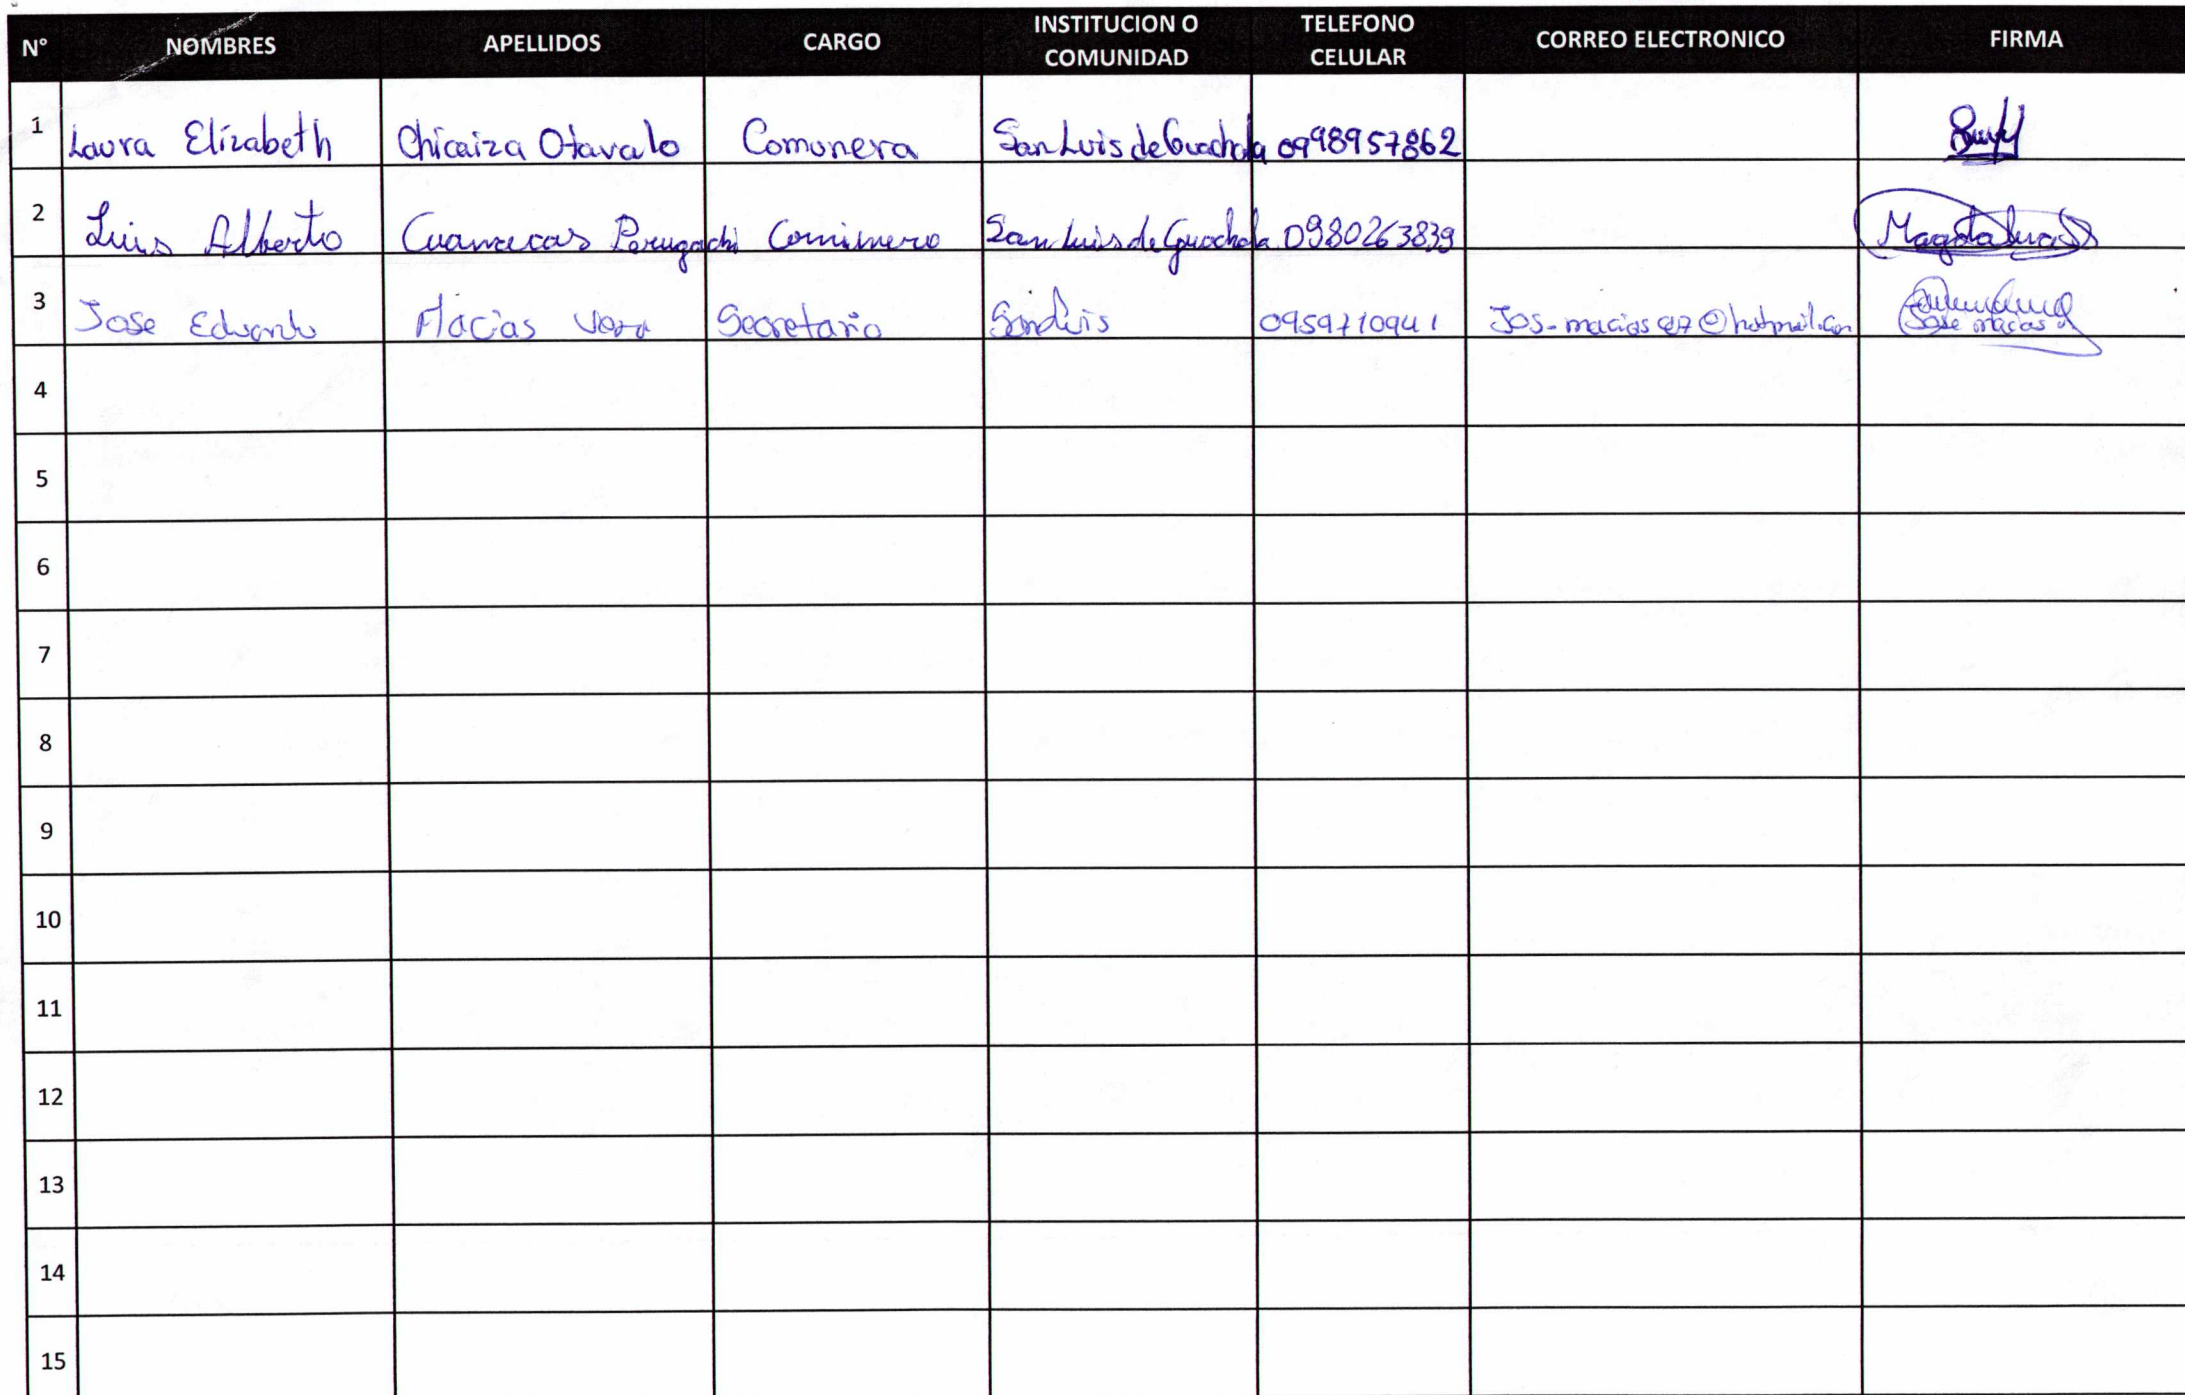 N° NOMBRES APELLIDOS CARGO INSTITUCION O COMUNIDAD TELEFONO CELULAR CORREO ELECTRONICO FIRMA
1 Laura Elizabeth Chicaiza Otavalo Comunera San Luis de Guachala 0998957862
2 Luis Alberto Cuamacas Perugachi Comunero San Luis de Guachala 0980263839
3 Jose Eduardo Macias Vera Secretario San Luis 0959710941 Jose macias
4
5
6
7
8
9
10
11
12
13
14
15